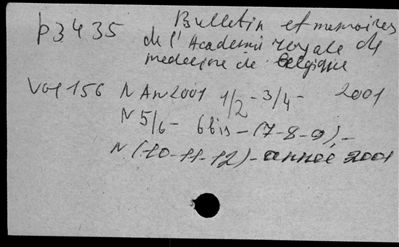 p3435 Bulletin et memoires
de l'Academie royale de
medecine de Belgique
Vol 156 N An 2001 1/2 - 3/4 - 2001
N 5/6 - 6bis - (7-8-9), -
N (10-11-12) - année 2001